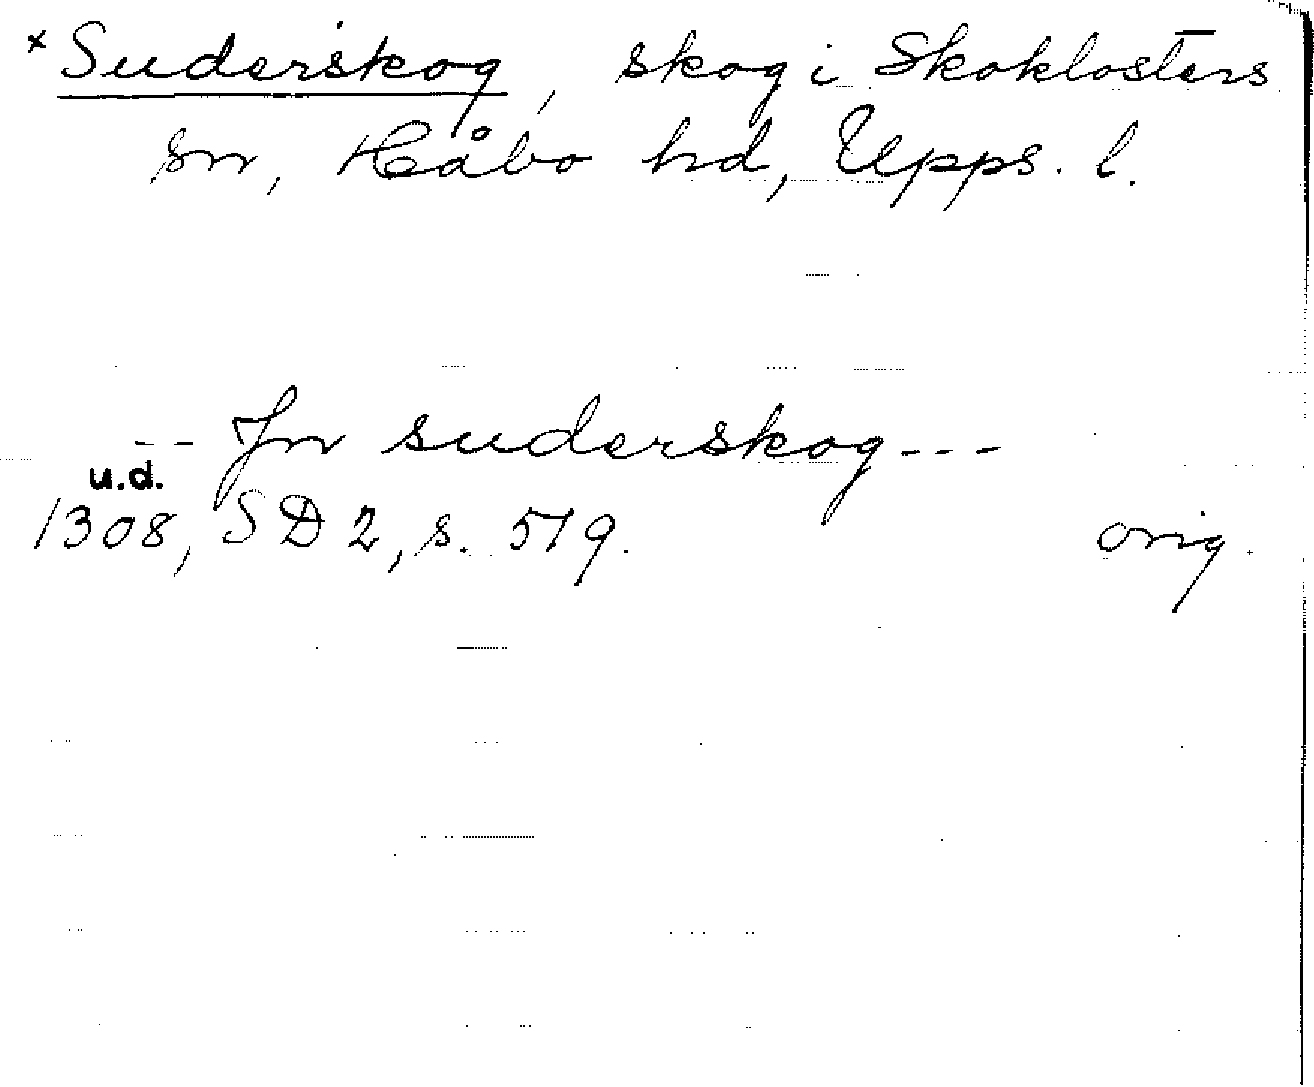 ×Suderskog, skog i Skoklosters
sn, Håbo hd, Upps. l.
-- Jn suderskog ---
u.d.
1308, SD 2, s. 519.
orig.